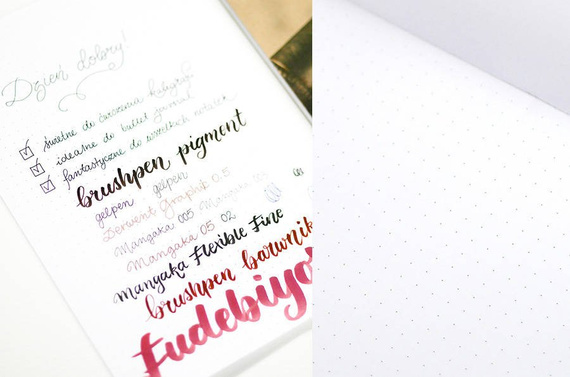 Dzień dobry!
świetne do ćwiczenia kaligrafii
idealne do bullet journal
fantastyczne do wszelkich notatek
brushpen pigment
gelpen gelpen
Derwent Graphik 0.5
Mangaka 005 Mangaka
Mangaka 05 02
Mangaka Flexible Fine
brushpen barwnik
fudebiyo